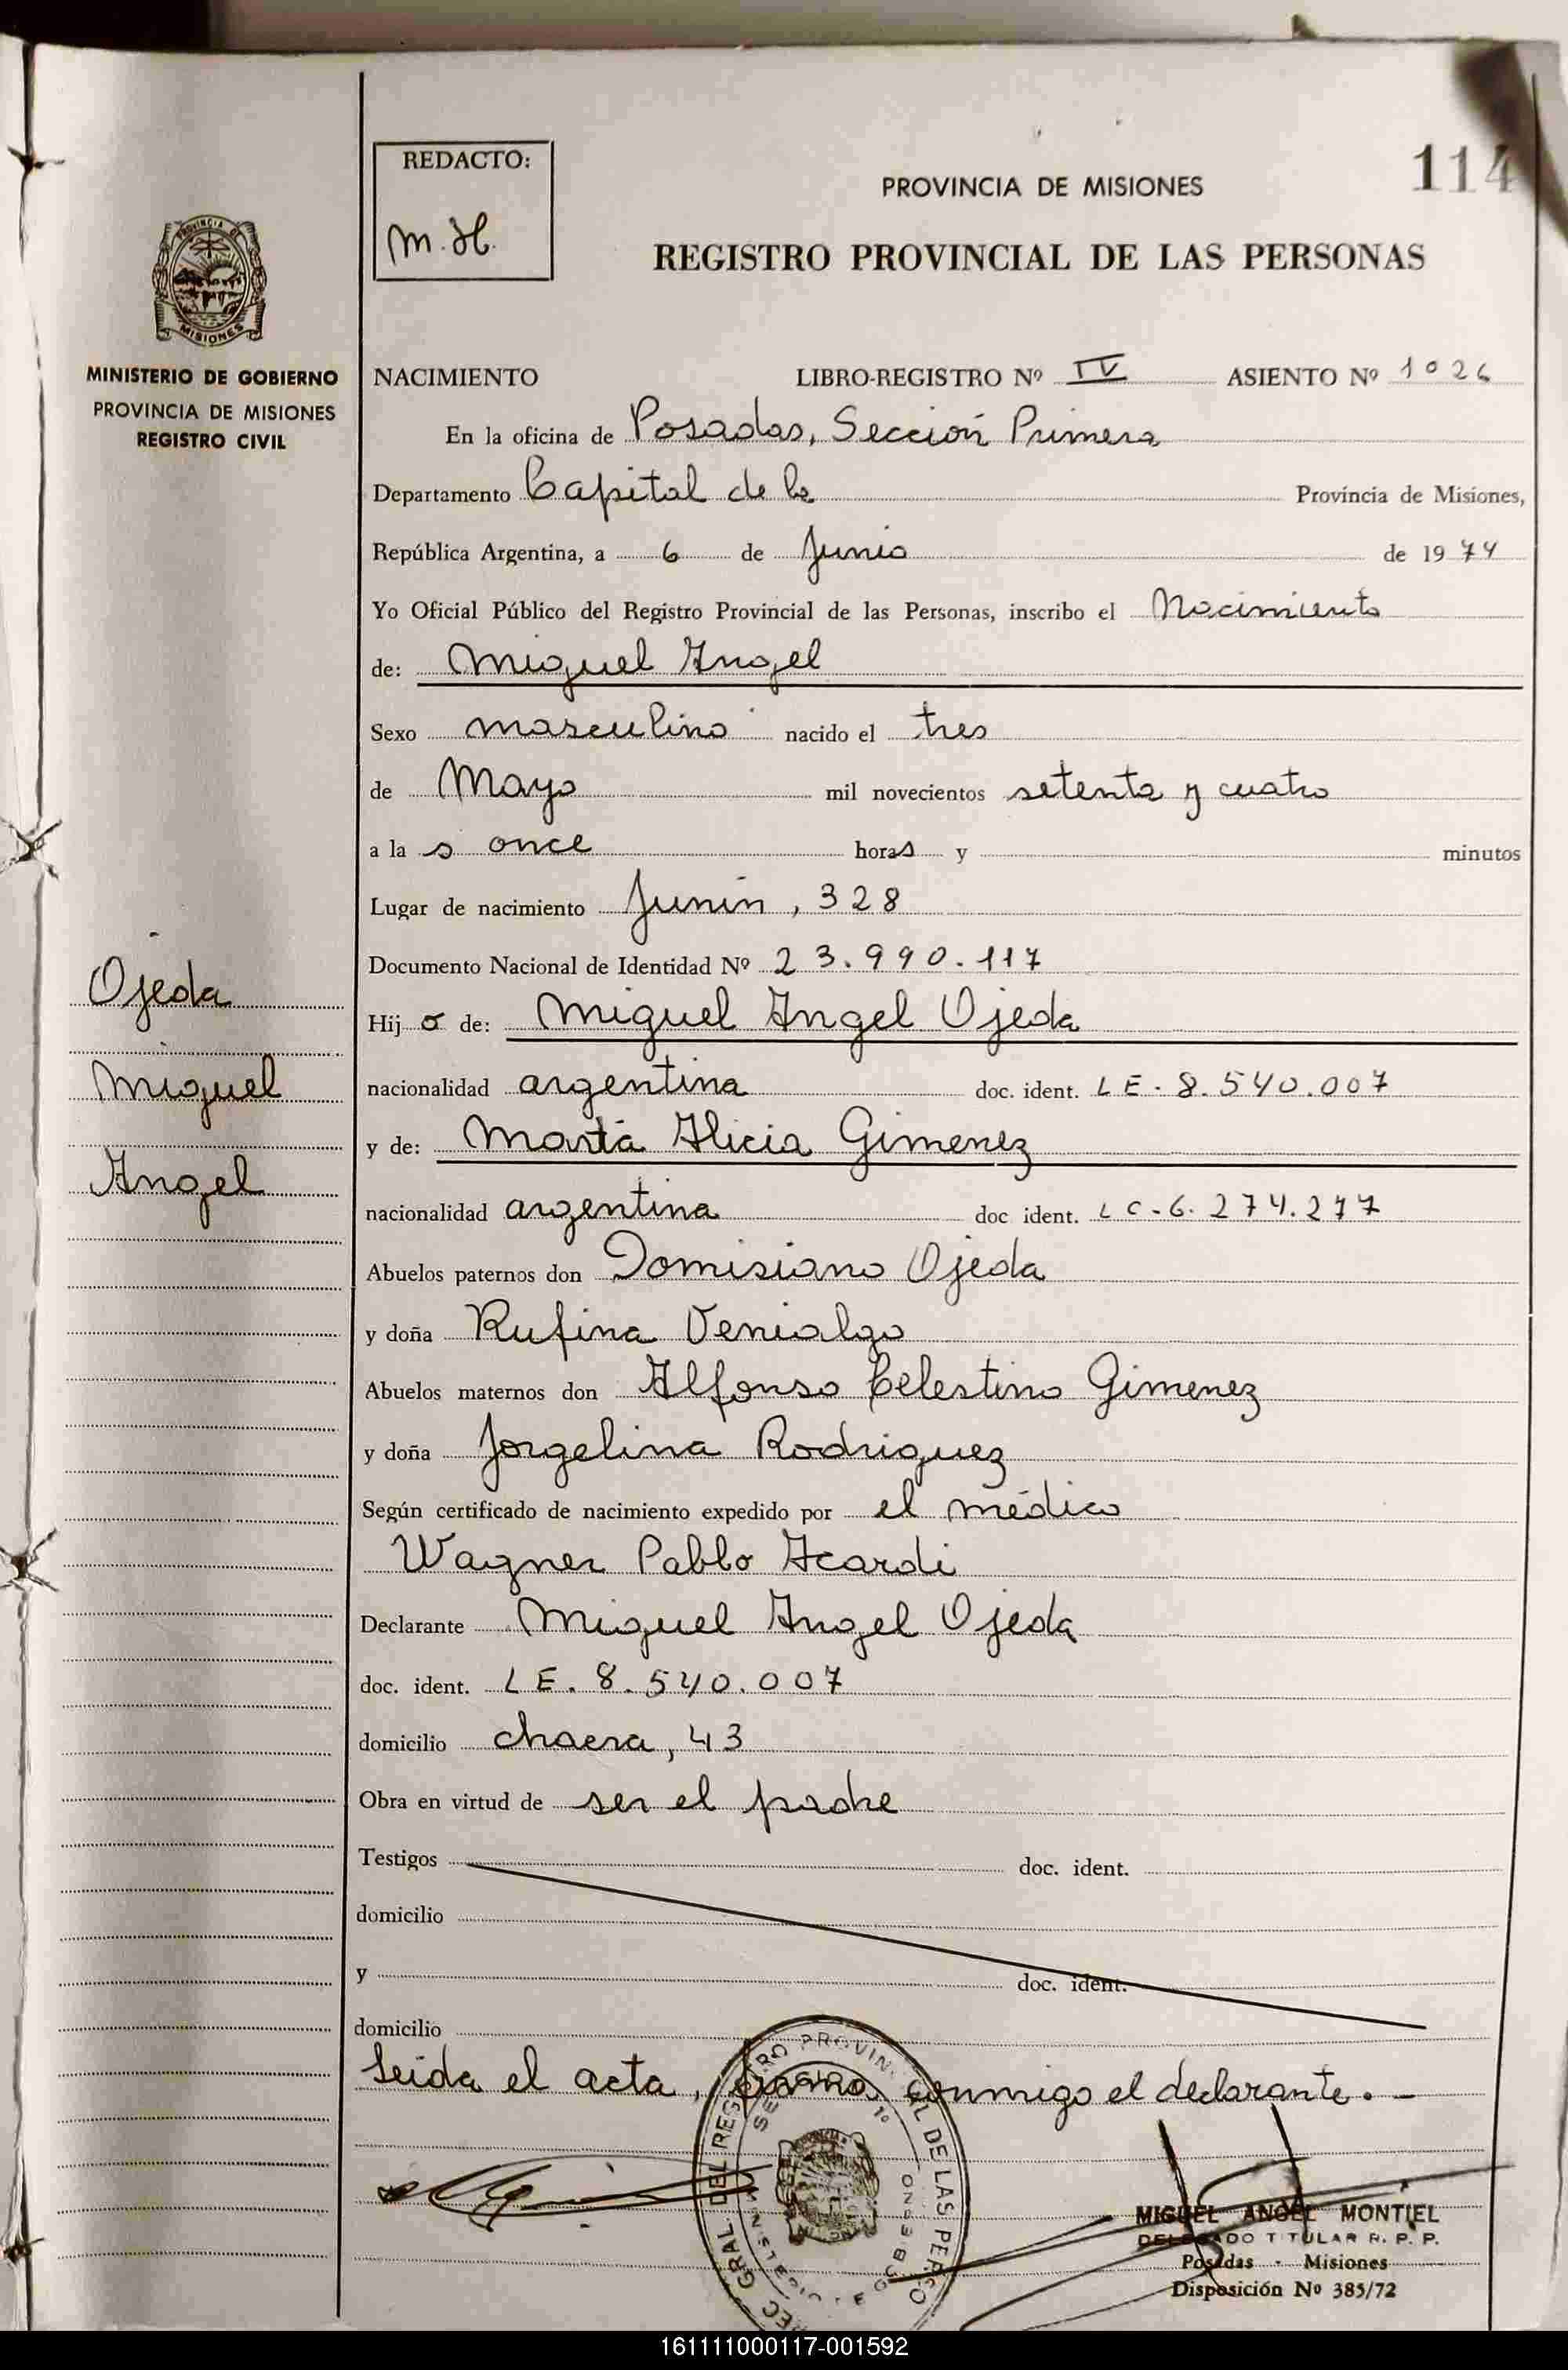 114
REDACTO:
M. H.
PROVINCIA DE MISIONES
REGISTRO PROVINCIAL DE LAS PERSONAS
PROVINCIA DE
MISIONES
MINISTERIO DE GOBIERNO
PROVINCIA DE MISIONES
REGISTRO CIVIL
NACIMIENTO LIBRO-REGISTRO Nº IV ASIENTO Nº 1026
En la oficina de Posadas, Sección Primera
Departamento Capital de la Provincia de Misiones,
República Argentina, a 6 de Junio de 1974
Yo Oficial Público del Registro Provincial de las Personas, inscribo el Nacimiento
de: Miguel Angel
Sexo masculino nacido el tres
de Mayo mil novecientos setenta y cuatro
a las once horas y minutos
Lugar de nacimiento Junín, 328
Documento Nacional de Identidad Nº 23.990.117
Ojeda
Miguel
Angel
Hijo de: Miguel Angel Ojeda
nacionalidad argentina doc. ident. LE. 8.540.007
y de: Marta Alicia Gimenez
nacionalidad argentina doc ident. LC.6.274.277
Abuelos paternos don Domisiano Ojeda
y doña Rufina Venialgo
Abuelos maternos don Alfonso Celestino Gimenez
y doña Jorgelina Rodriguez
Según certificado de nacimiento expedido por el médico
Wagner Pablo Acardi
Declarante Miguel Angel Ojeda
doc. ident. LE. 8.540.007
domicilio chacra, 43
Obra en virtud de ser el padre
Testigos doc. ident.
domicilio
y doc. ident.
domicilio
Leída el acta, firma conmigo el declarante. -
GRAL. DEL REGISTRO PROVINCIAL DE LAS PERSO
MIGUEL ANGEL MONTIEL
DELEGADO TITULAR R. P. P.
Posadas - Misiones
Disposición Nº 385/72
161111000117-001592